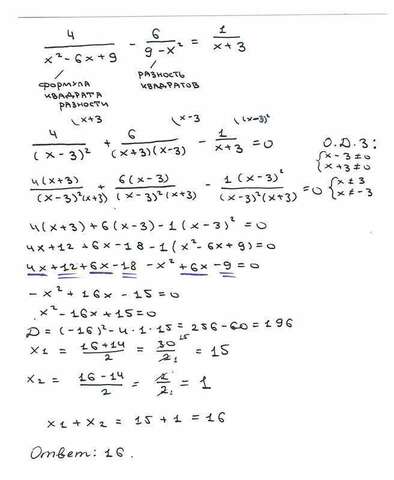 4/(x²-6x+9) - 6/(9-x²) = 1/(x+3)
формула квадрата разности
разность квадратов
\x+3 \x-3 \(x-3)²
4/(x-3)² + 6/((x+3)(x-3)) - 1/(x+3) = 0
О.Д.З:
{x-3≠0
x+3≠0
4(x+3)/((x-3)²(x+3)) + 6(x-3)/((x-3)²(x+3)) - 1(x-3)²/((x-3)²(x+3)) = 0
{x≠3
x≠-3
4(x+3)+6(x-3)-1(x-3)²=0
4x+12+6x-18-1(x²-6x+9)=0
4x+12+6x-18-x²+6x-9=0
-x²+16x-15=0
x²-16x+15=0
D=(-16)²-4·1·15=256-60=196
x₁ = (16+14)/2 = 30¹⁵/2₁ = 15
x₂ = (16-14)/2 = 2/2 = 1
x₁+x₂=15+1=16
Ответ: 16.